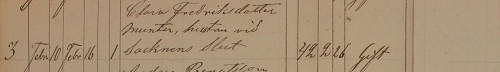 Clara Fredriksdotter
munter, hustru vid
3 Febr 10 Febr 16 1 Socknens Slut 42 2 26 Gift
Bengtsson